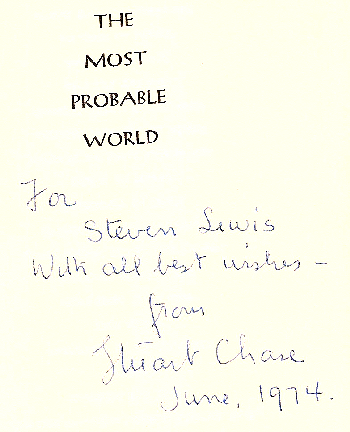 THE
MOST
PROBABLE
WORLD
For
Steven Lewis
With all best wishes –
from
Stuart Chase
June, 1974.